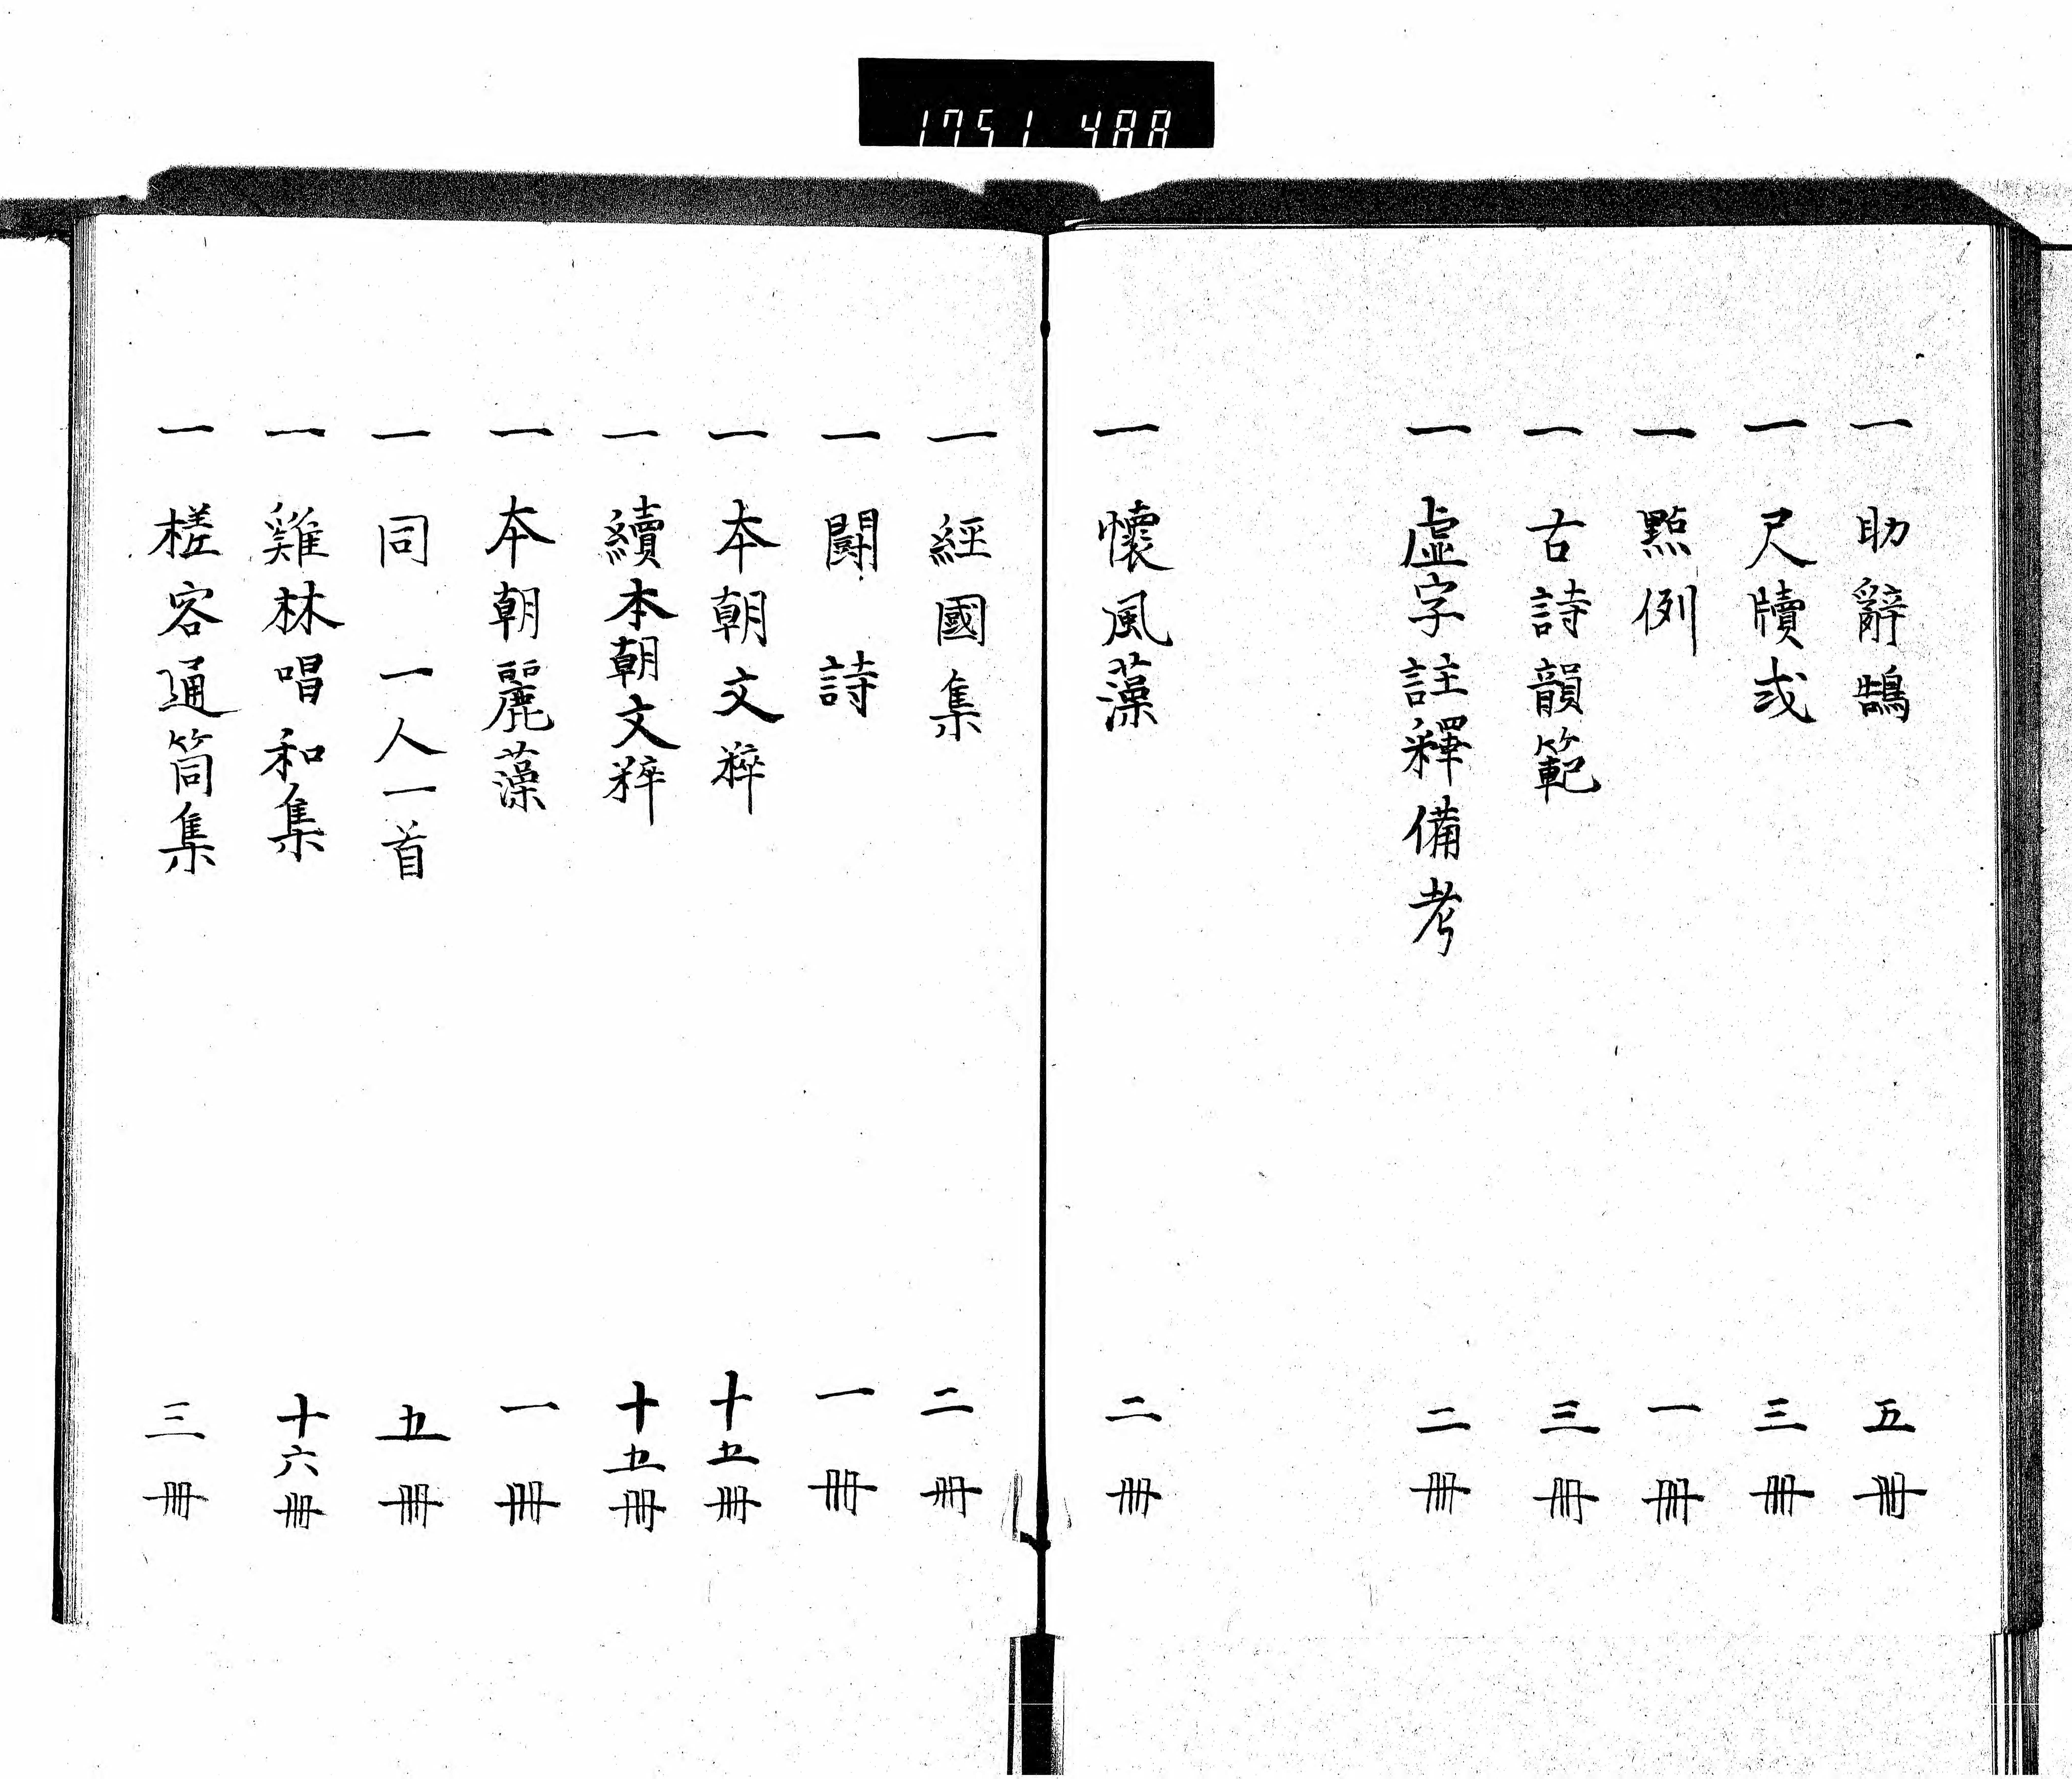 1751 488
一 助辭鵠 五冊
一 尺牘式 三冊
一 點例 一冊
一 古詩韻範 三冊
一 虛字註釋備考 二冊
一 懷風藻 二冊
一 經國集 二冊
一 鬪詩 一冊
一 本朝文粹 十五冊
一 續本朝文粹 十五冊
一 本朝麗藻 一冊
一 同 一人一首 五冊
一 雞林唱和集 十六冊
一 槎客通筒集 三冊